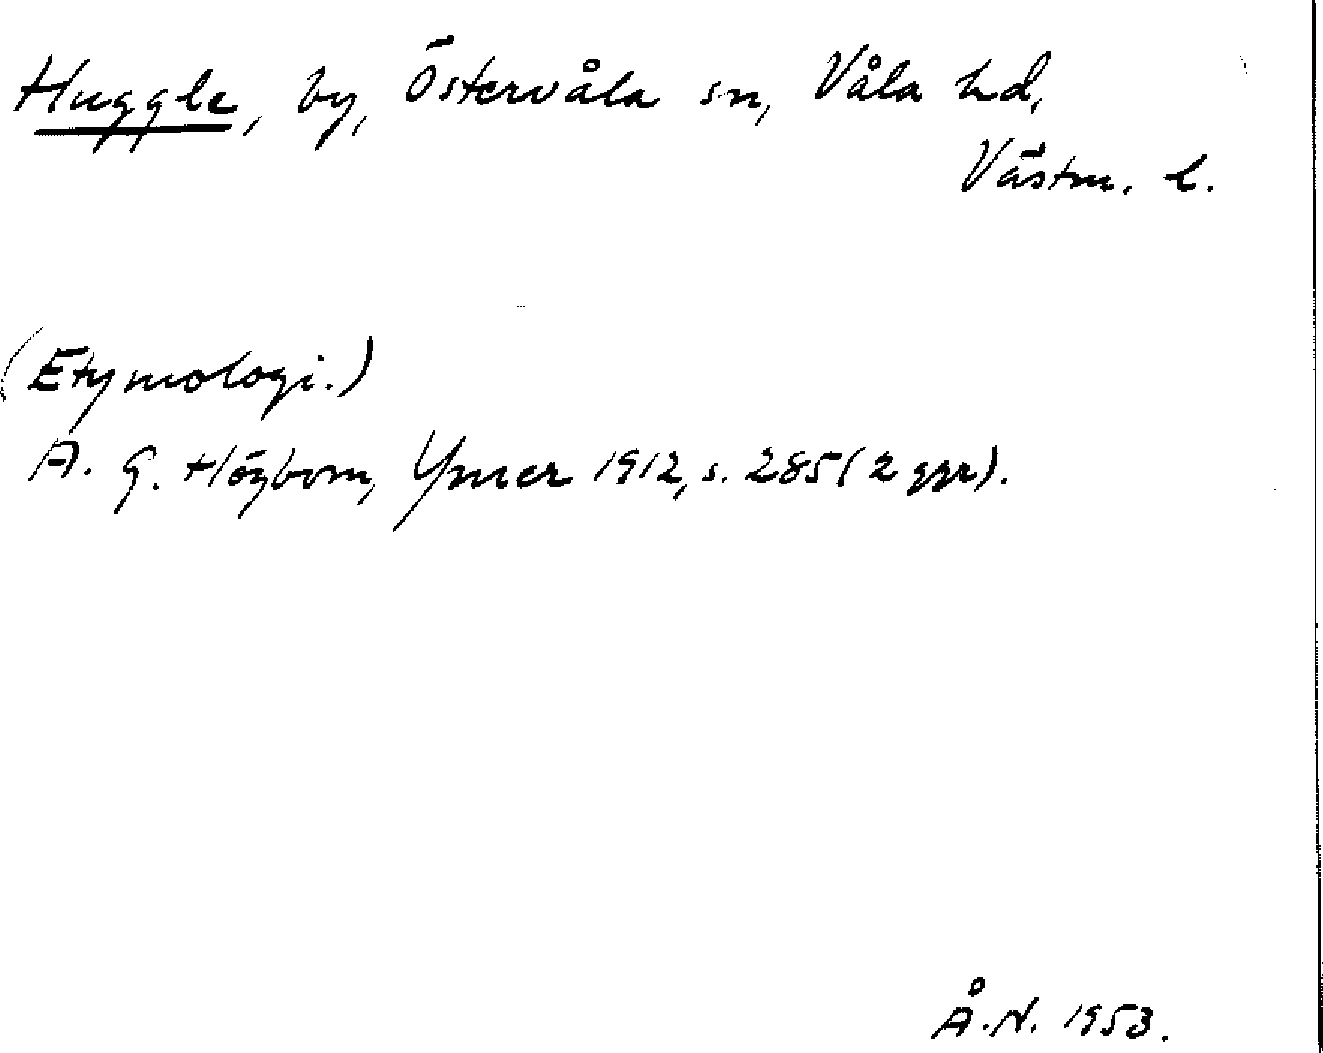 Huggle, by, Östervåla sn, Våla hd,
Västm. l.
(Etymologi.)
A. G. Högbom, Ymer 1912, s. 285 (2 ggr).
Å.N. 1953.